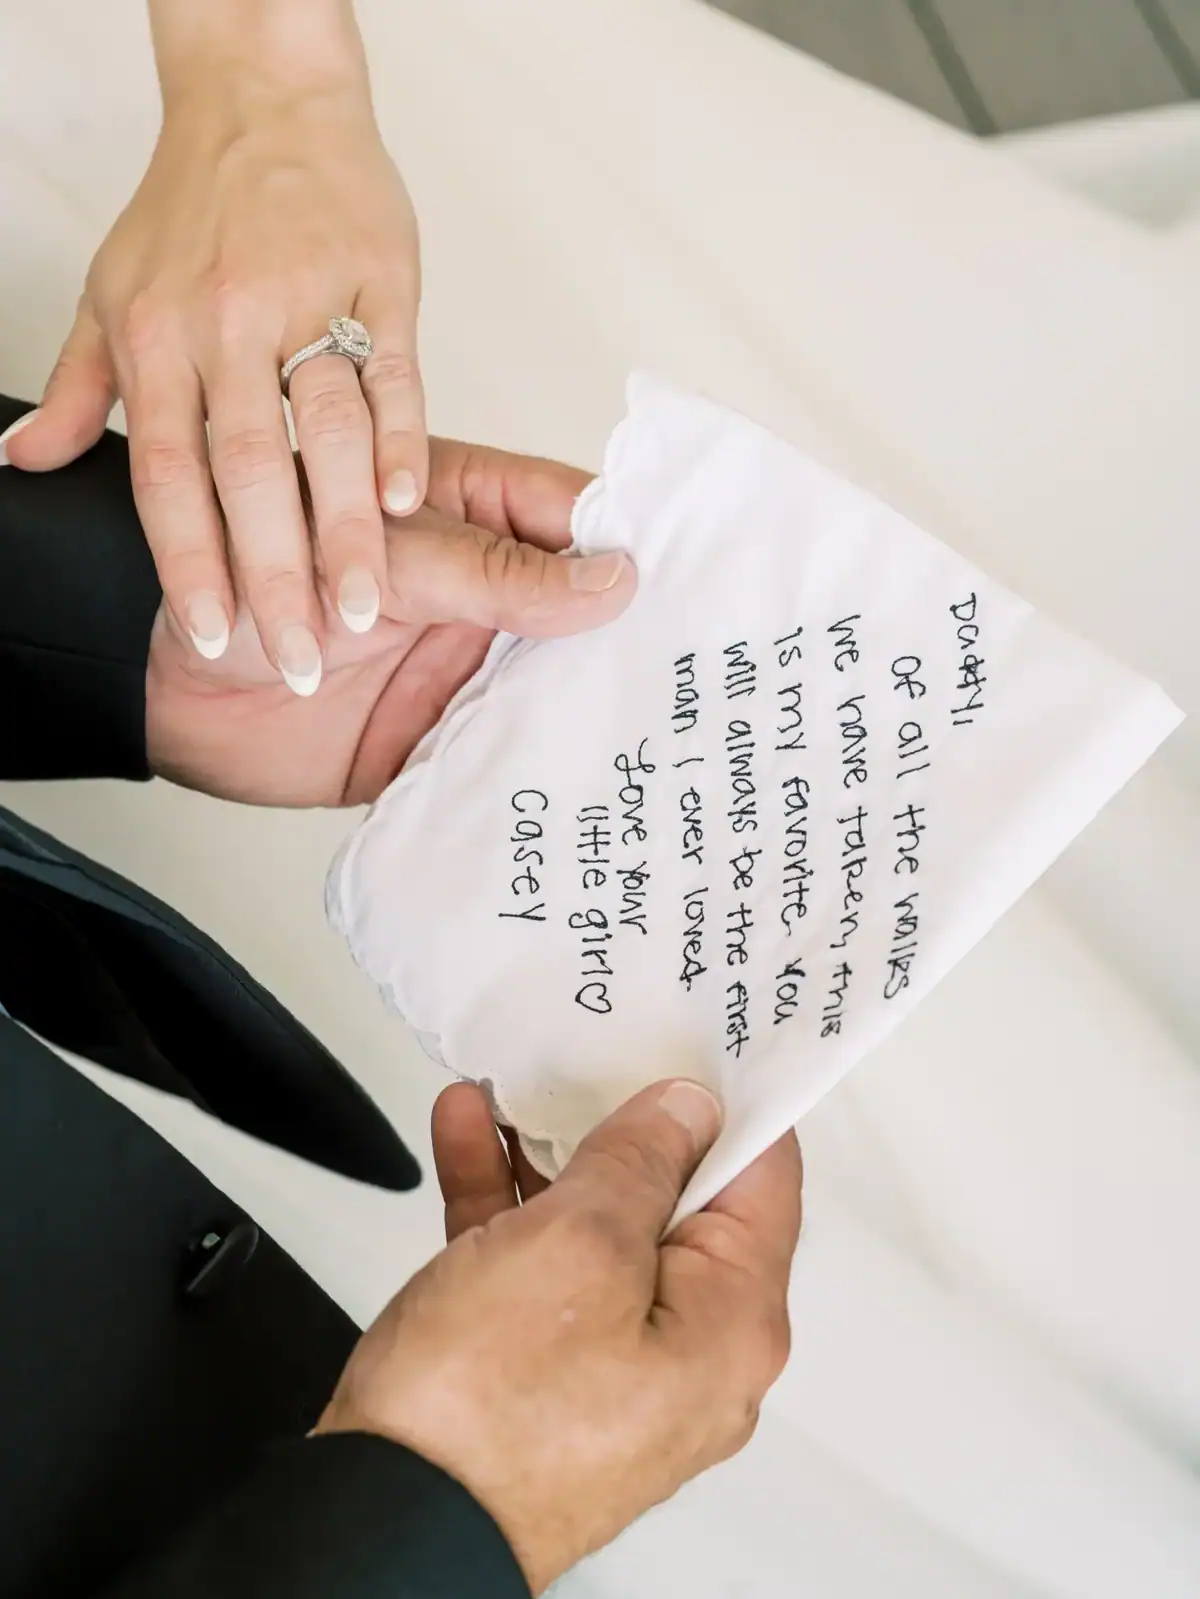 Daddy,
of all the walks
we have taken, this
is my favorite. You
will always be the first
man I ever loved.
Love your
little girl♡
Casey